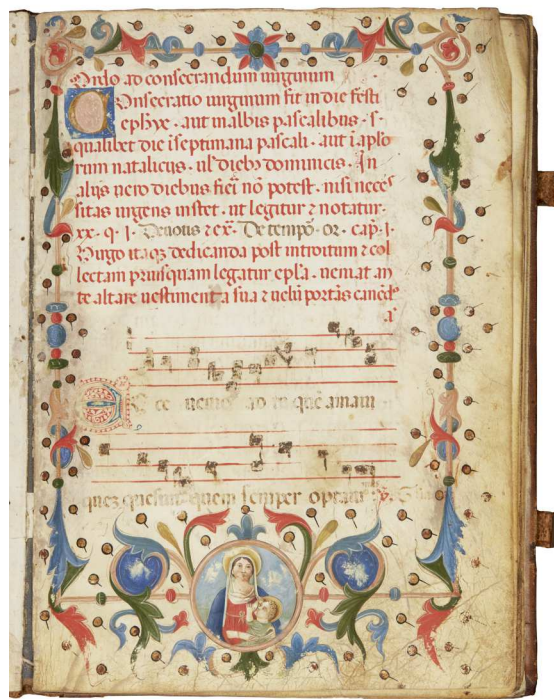 Ordo ad consecrandum uirginum
Consecratio uirginum fit in die festi
ephye · aut in albis pascalibus · s·
qualibet die i septimana pascali · aut i aplo
rum nataliciis · ul' dieb; dominicis · In
aliis uero diebus fieri nō potest · nisi neces
sitas urgens instet · ut legitur ⁊ notatur
xx · q · j · Deuotis ⁊ ex̄ · De tempō · or · cap̄ · j ·
Virgo itaq; dedicanda post introitum ⁊ col
lectam priusquam legatur epl'a · ueniat an
te altare uestimenta sua ⁊ uelū portās
Ecce uenio ad te quē amaui
quez quesiui quem semper optaui